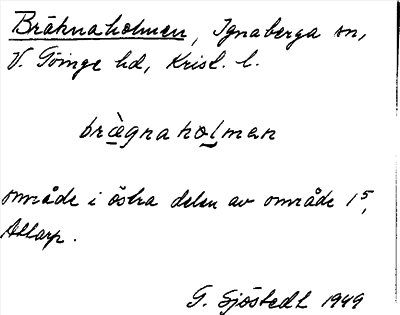 Bräknaholmen, Ignaberga sn,
V. Göinge hd, Krist. l.
bràgnaholman
område i östra delen av område 1⁵,
Attarp.
G. Sjöstedt 1949